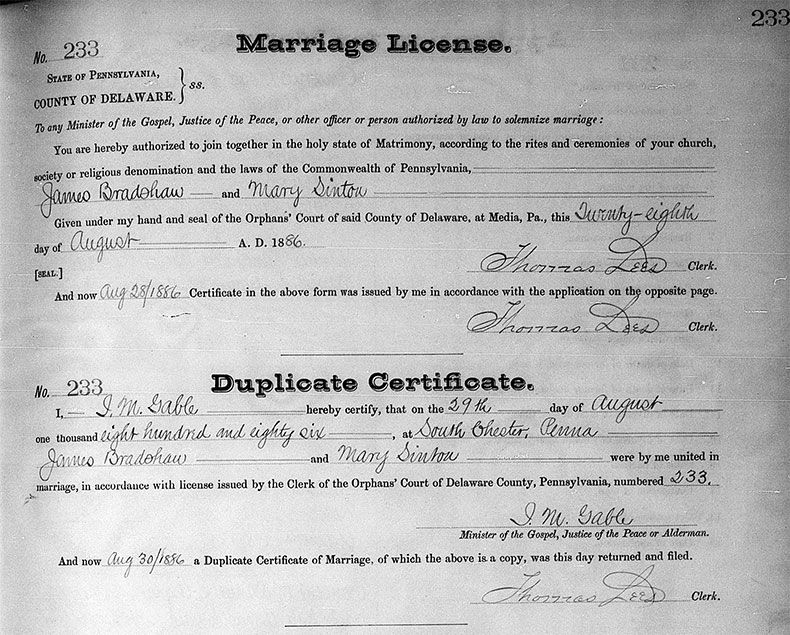 233
No. 233
Marriage License.
STATE OF PENNSYLVANIA,
COUNTY OF DELAWARE. } ss.
To any Minister of the Gospel, Justice of the Peace, or other officer or person authorized by law to solemnize marriage:
You are hereby authorized to join together in the holy state of Matrimony, according to the rites and ceremonies of your church,
society or religious denomination and the laws of the Commonwealth of Pennsylvania,
James Bradshaw and Mary Sinton
Given under my hand and seal of the Orphans' Court of said County of Delaware, at Media, Pa., this Twenty-eighth
day of August A. D. 1886.
Thomas Lees Clerk.
[SEAL.]
And now Aug 28/1886 Certificate in the above form was issued by me in accordance with the application on the opposite page.
Thomas Lees Clerk.
No. 233
Duplicate Certificate.
I, I. M. Gable hereby certify, that on the 29th day of August
one thousand eight hundred and eighty six, at South Chester, Penna
James Bradshaw and Mary Sinton were by me united in
marriage, in accordance with license issued by the Clerk of the Orphans' Court of Delaware County, Pennsylvania, numbered 233.
I. M. Gable
Minister of the Gospel, Justice of the Peace or Alderman.
And now Aug 30/1886 a Duplicate Certificate of Marriage, of which the above is a copy, was this day returned and filed.
Thomas Lees Clerk.